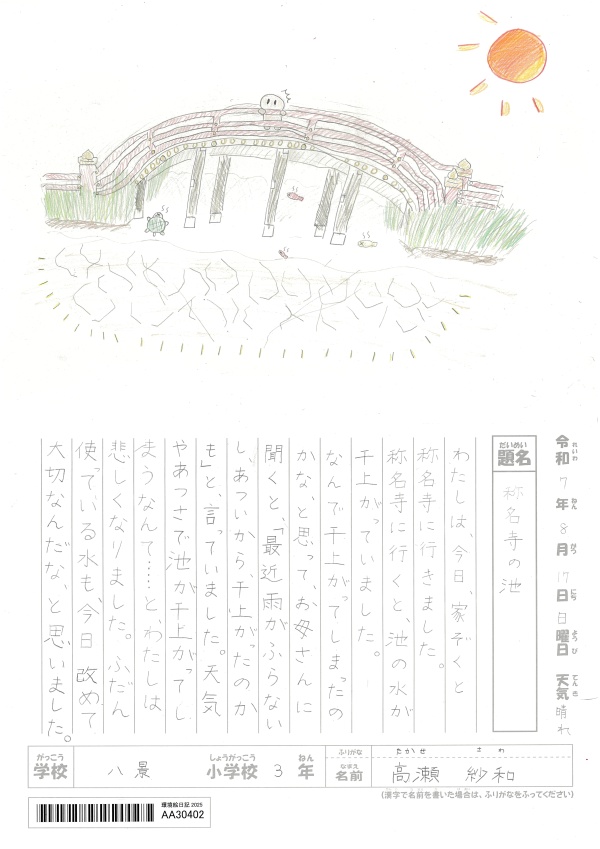 令和 7 年 8 月 17 日 日 曜日 天気 晴れ
れいわ ねん がつ にち ようび てんき
だいめい
題名
称名寺の池
わたしは、今日、家ぞくと
称名寺に行きました。
称名寺に行くと、池の水が
干上がっていました。
なんで干上がってしまったの
かな、と思って、お母さんに
聞くと、「最近雨がふらない
し、あついから、干上がったのか
も」と、言っていました。天気
やあつさで池が干上がってし
まうなんて……と、わたしは
悲しくなりました。ふだん
使っている水も、今日 改めて
大切なんだな、と思いました。
がっこう
学校
八景
しょうがっこう
小学校
3
ねん
年
ふりがな
たかせ さわ
なまえ
名前
高瀬 紗和
(漢字で名前を書いた場合は、ふりがなをふってください)
環境絵日記 2025
AA30402